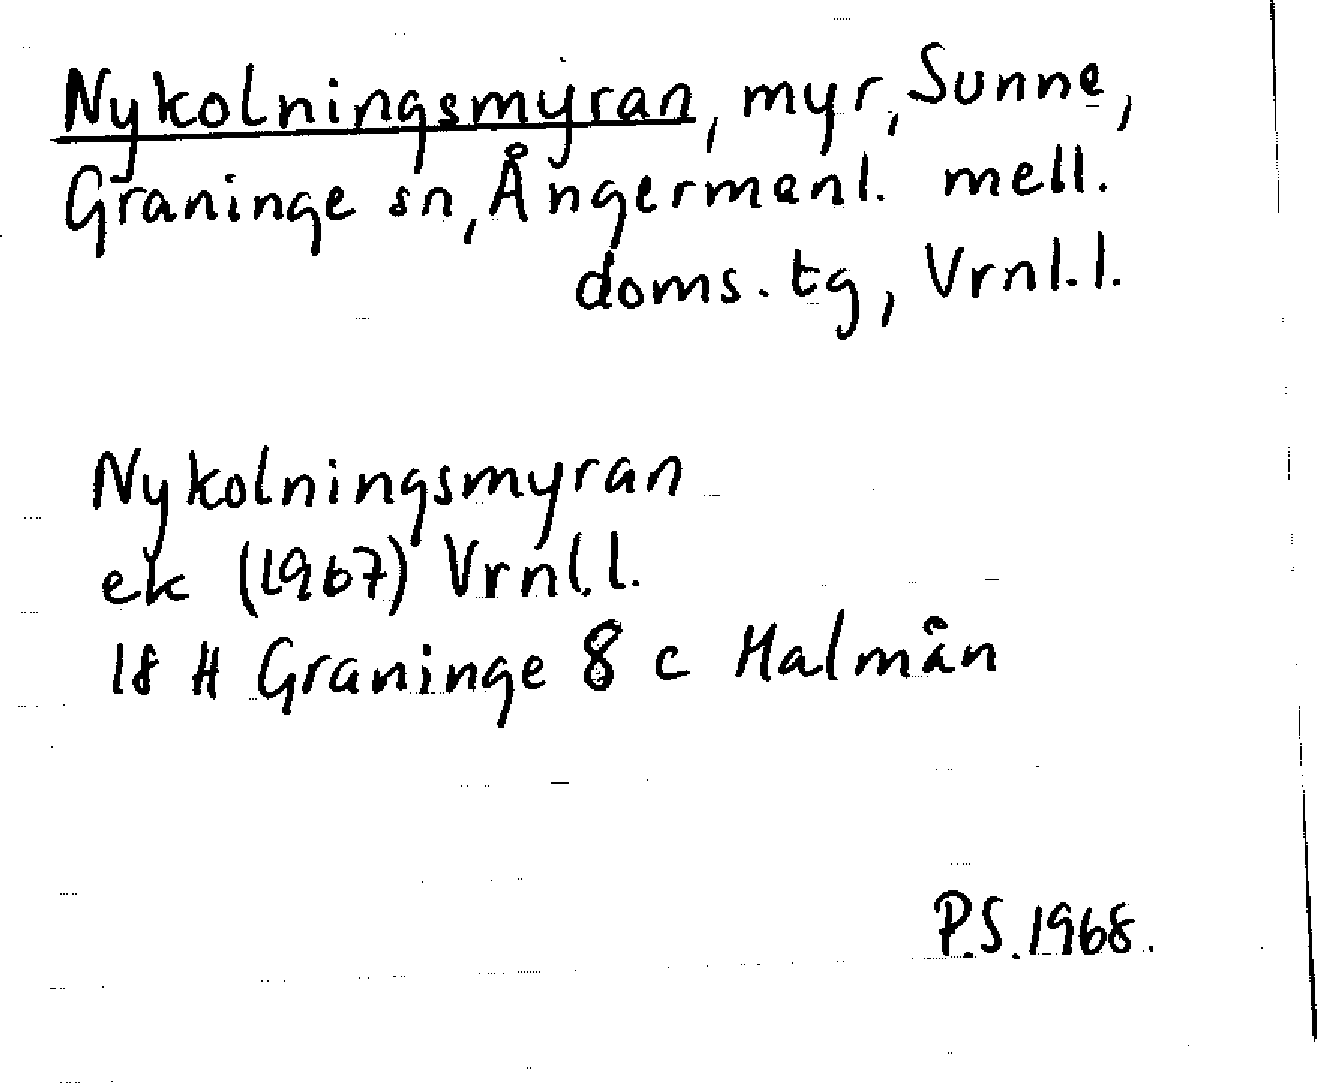 Nykolningsmyran, myr, Sunne,
Graninge sn, Ångermanl. mell.
doms. tg, Vrnl. l.
Nykolningsmyran
ek (1967) Vrnl. l.
18 H Graninge 8 c Halmån
P.S. 1968.